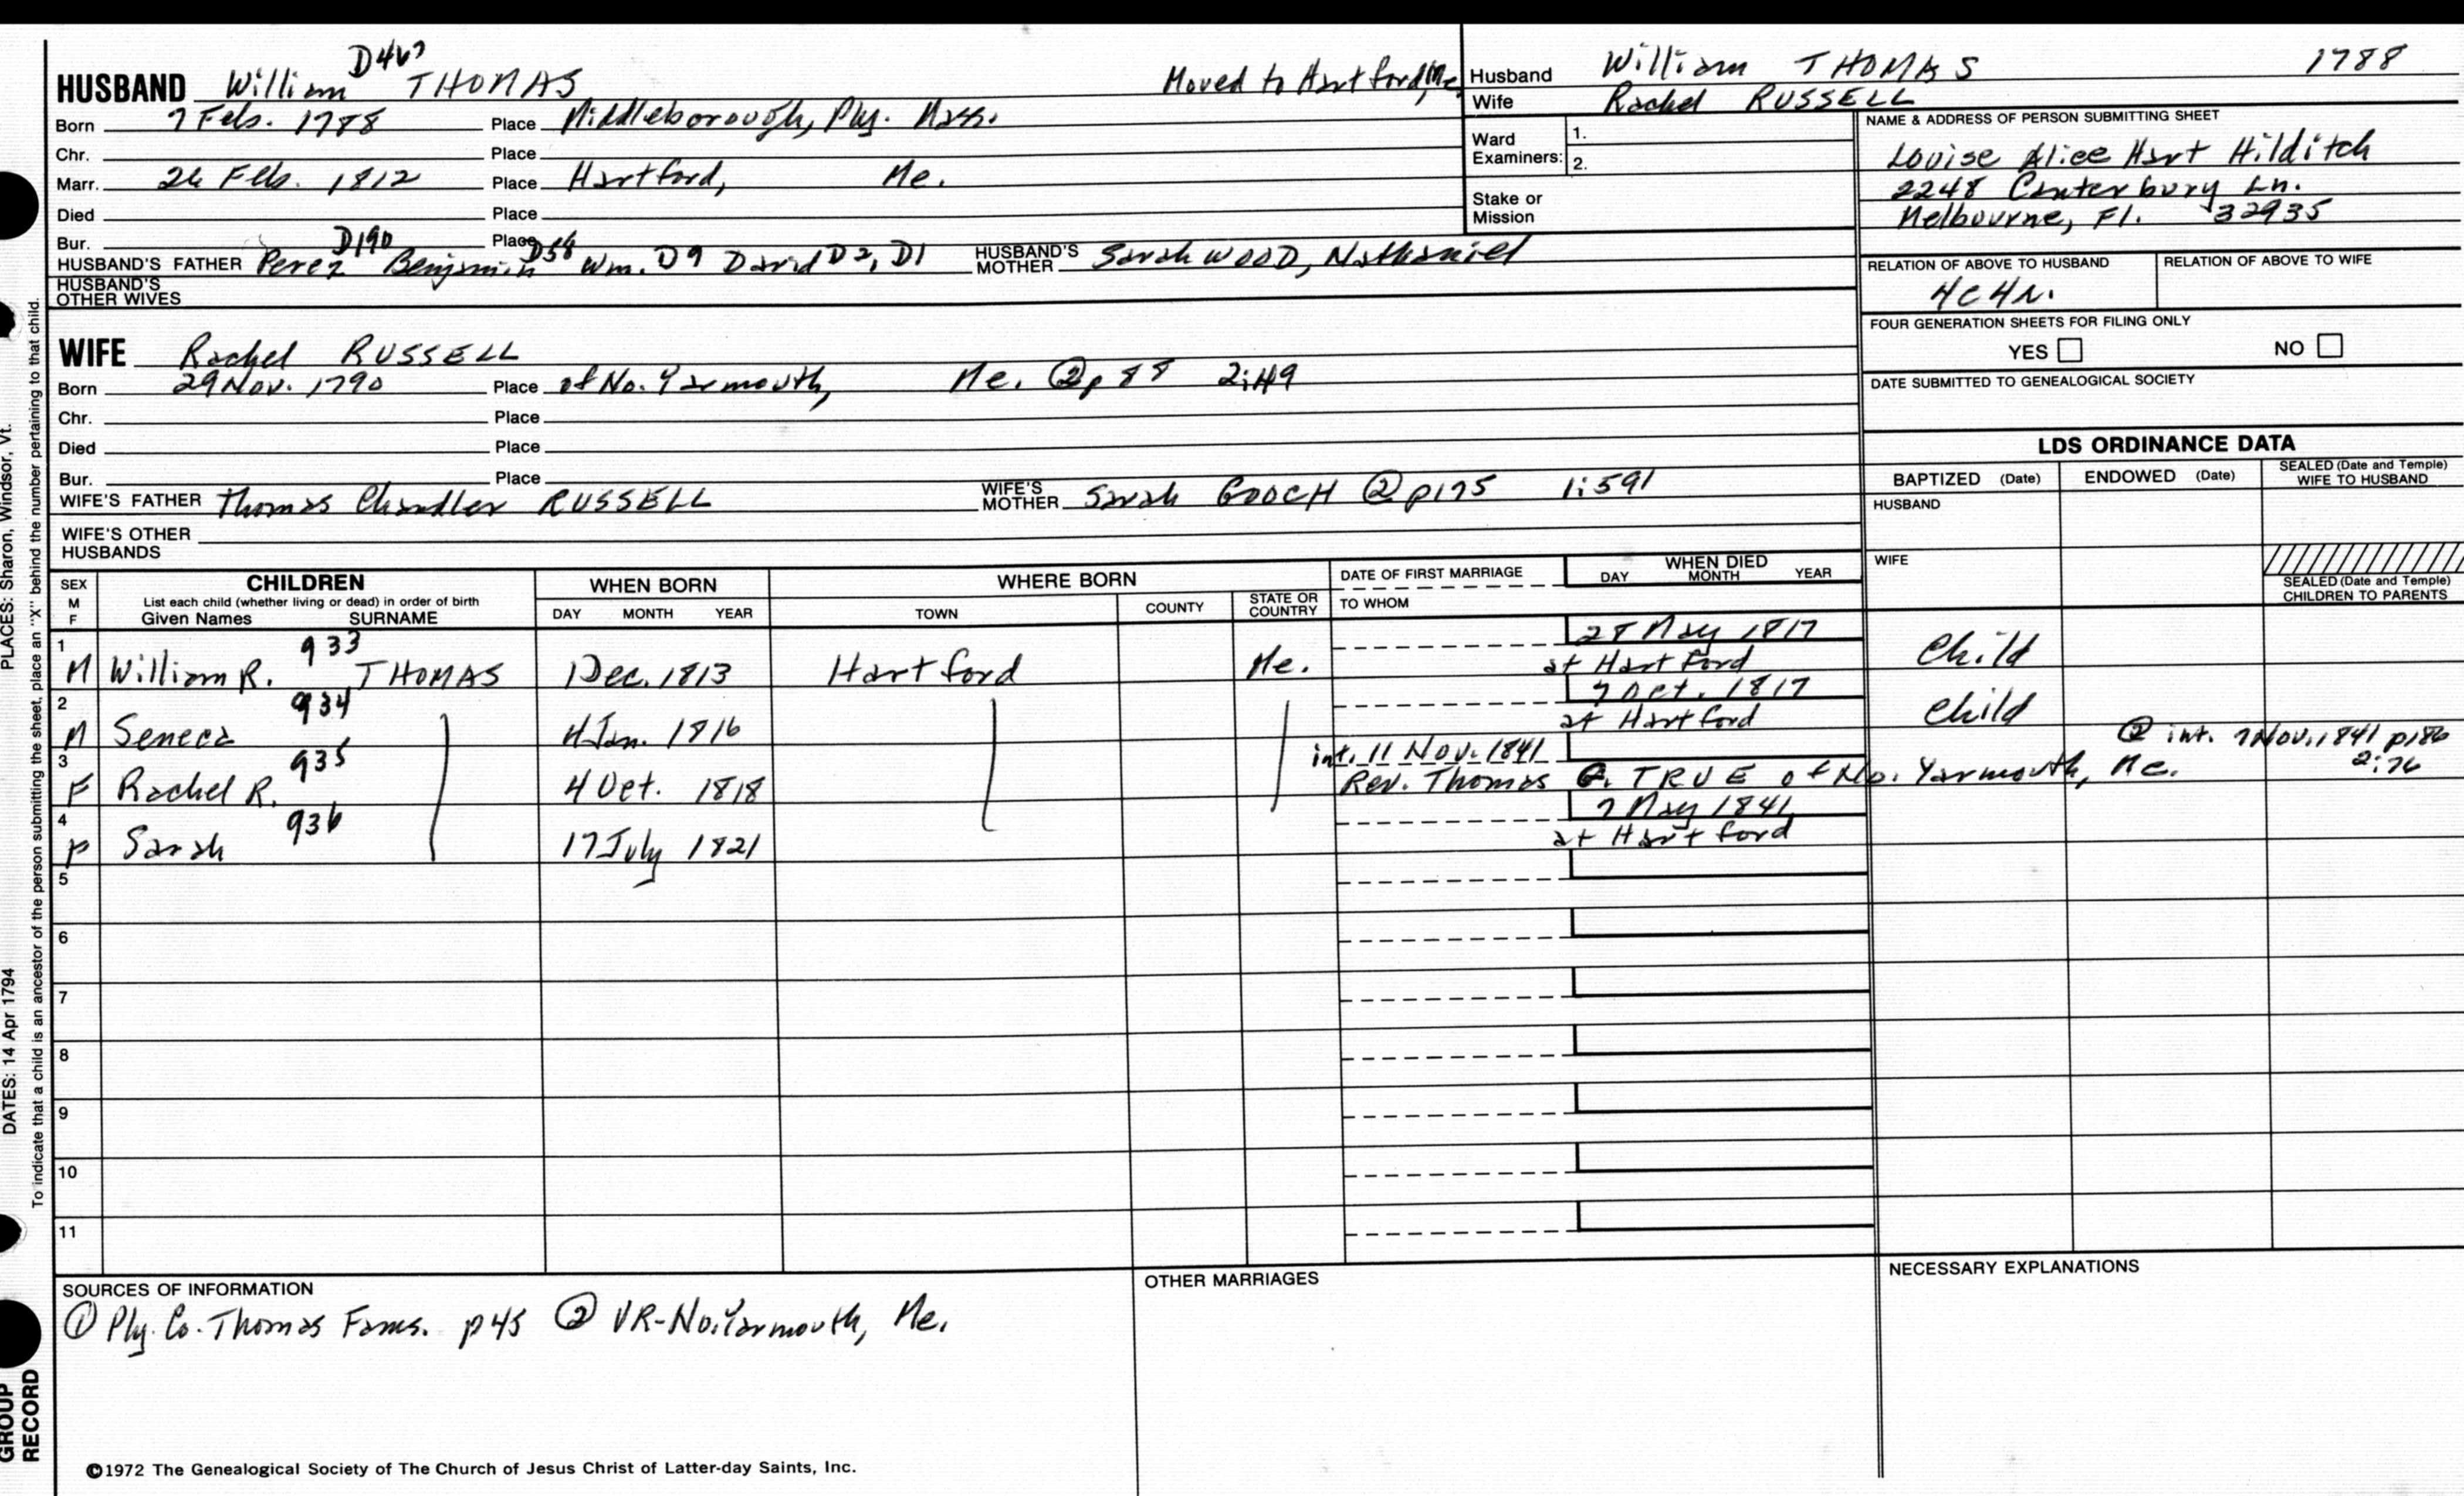 D467
HUSBAND William THOMAS Moved to Hartford, Me.
Born 7 Feb. 1788 Place Middleborough, Ply. Mass.
Chr. Place
Marr. 26 Feb. 1812 Place Hartford, Me.
Died Place
Bur. Place
D190 D58
HUSBAND'S FATHER Perez Benjamin Wm. D9 David D2, D1 HUSBAND'S MOTHER Sarah WOOD, Nathaniel
HUSBAND'S OTHER WIVES
Husband William THOMAS 1788
Wife Rachel RUSSELL
Ward Examiners: 1.
2.
Stake or Mission
NAME & ADDRESS OF PERSON SUBMITTING SHEET
Louise Alice Hart Hilditch
2248 Canterbury Ln.
Melbourne, Fl. 32935
RELATION OF ABOVE TO HUSBAND RELATION OF ABOVE TO WIFE
4C4R.
FOUR GENERATION SHEETS FOR FILING ONLY
YES NO
DATE SUBMITTED TO GENEALOGICAL SOCIETY
WIFE Rachel RUSSELL
Born 29 Nov. 1790 Place of No. Yarmouth, Me. ② p 88 2:449
Chr. Place
Died Place
Bur. Place
WIFE'S FATHER Thomas Chandler RUSSELL WIFE'S MOTHER Sarah GOOCH ② p175 1:591
WIFE'S OTHER HUSBANDS
LDS ORDINANCE DATA
BAPTIZED (Date) ENDOWED (Date) SEALED (Date and Temple) WIFE TO HUSBAND
HUSBAND
WIFE
SEALED (Date and Temple) CHILDREN TO PARENTS
SEX M F
CHILDREN
List each child (whether living or dead) in order of birth
Given Names SURNAME
WHEN BORN
DAY MONTH YEAR
WHERE BORN
TOWN COUNTY STATE OR COUNTRY
DATE OF FIRST MARRIAGE
TO WHOM
WHEN DIED
DAY MONTH YEAR
1 933 28 May 1817
M William R. THOMAS 1 Dec. 1813 Hartford Me. at Hartford Child
2 934 7 Oct. 1817
M Seneca 4 Jan. 1816 at Hartford Child
3 935 int. 11 Nov. 1841 ② int. 7 Nov. 1841 p186
F Rachel R. 4 Oct. 1818 Rev. Thomas G. TRUE of No. Yarmouth, Me. 2:76
4 936 7 May 1841
F Sarah 17 July 1821 at Hartford
5
6
7
8
9
10
11
SOURCES OF INFORMATION
① Ply. Co. Thomas Fams. p45 ② VR-No. Yarmouth, Me.
OTHER MARRIAGES
NECESSARY EXPLANATIONS
©1972 The Genealogical Society of The Church of Jesus Christ of Latter-day Saints, Inc.
GROUP RECORD
DATES: 14 Apr 1794 PLACES: Sharon, Windsor, Vt.
To indicate that a child is an ancestor of the person submitting the sheet, place an "X" behind the number pertaining to that child.